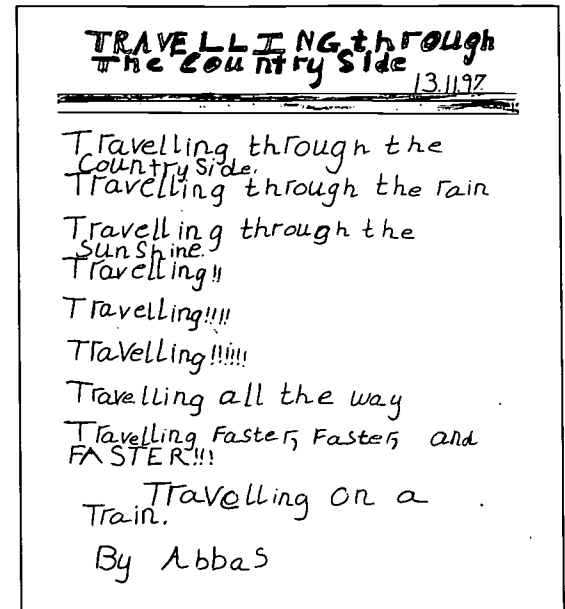 TRAVELLING through
The Country Side
13.11.97.
Travelling through the
Country Side.
Travelling through the rain
Travelling through the
Sunshine.
Travelling!!
Travelling!!!!
Travelling!!!!!!
Travelling all the way
Travelling Faster, Faster, and
FASTER!!!
Travelling on a
Train.
By Abbas